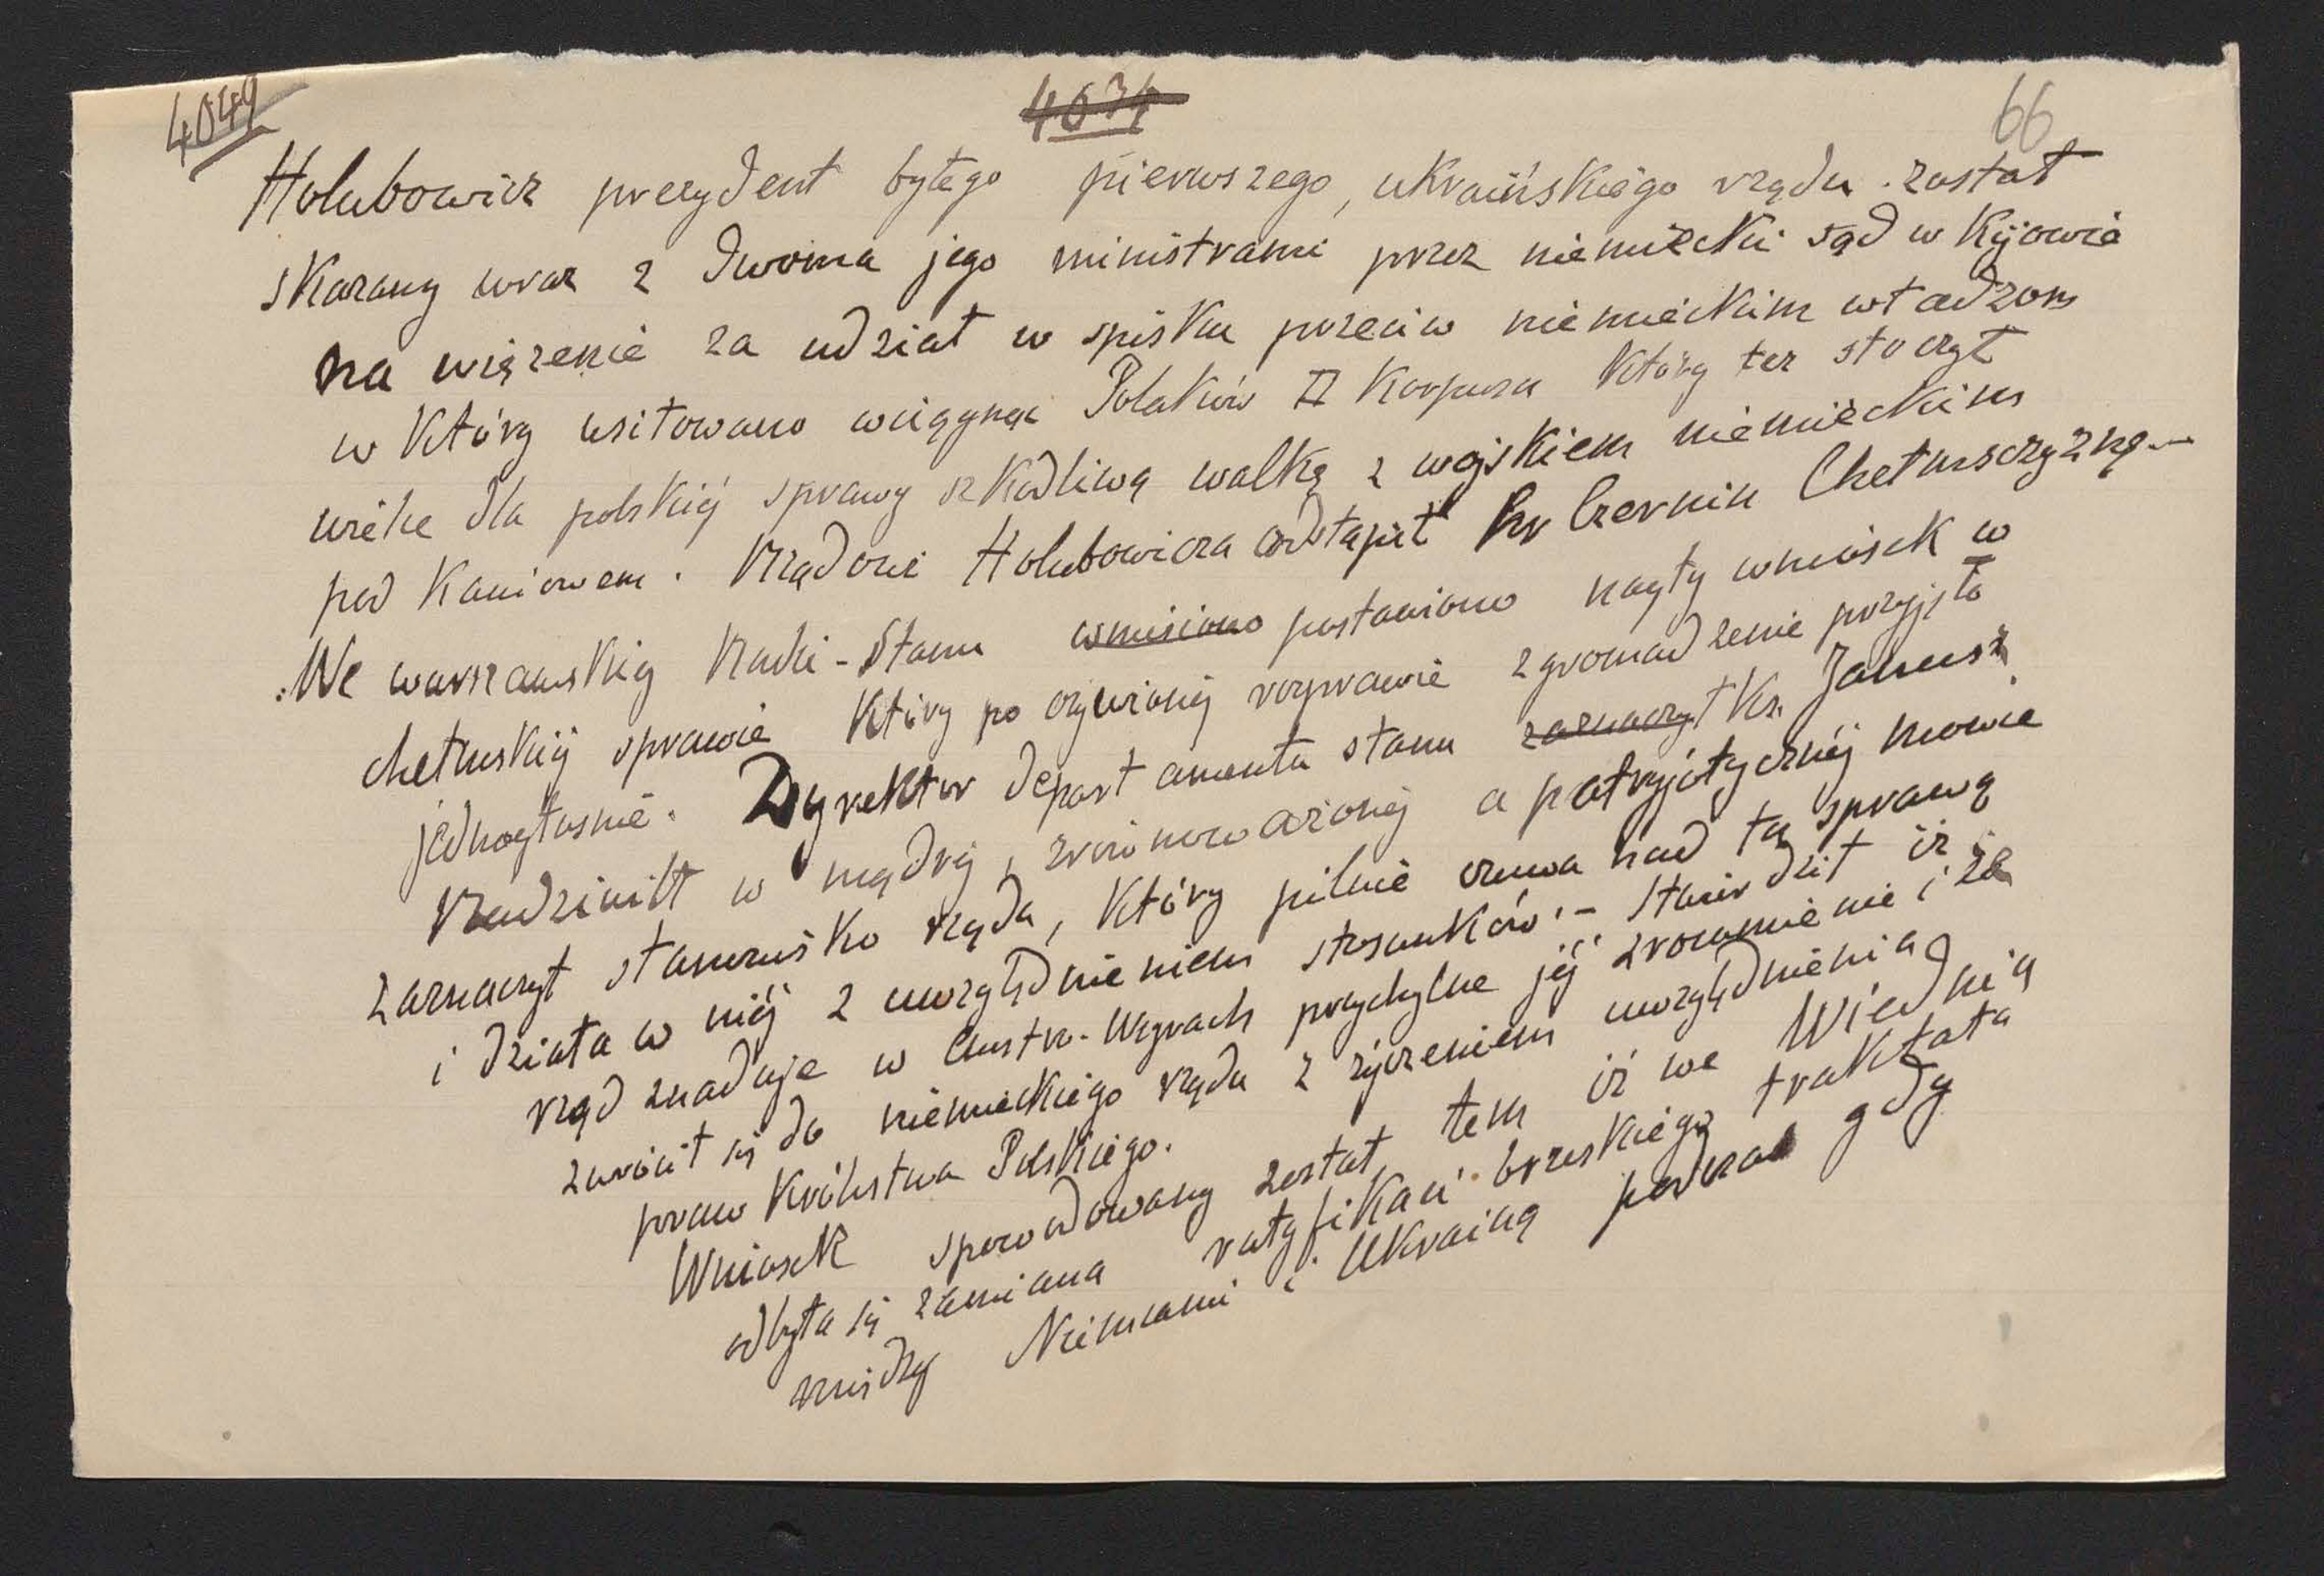 4049
4034
66
Holubowicz prezydent byłego pierwszego, ukraińskiego rządu. został
skazany wraz z dwoma jego ministrami przez niemiecki sąd w Kijowie
na więzenie za udział w spisku przeciw niemieckim władzom
w który usiłowano wciągynąć Polaków II Korpusu który też stoczył
wielce dla polskiéj sprawy szkodliwą walkę z wojskiem niemieckim
pod Kaniowem. Rządowi Holubowicza odstąpił hr Czernin Chełmsczyznę –
We warszawskiej Radzie-Stanu wniesiono postawiono nagły wniosek w
chełmskiéj sprawie który po ożywionéj rozprawie zgromadzenie przyjęło
jednogłosnie. Dyrektor departamentu stanu zaznaczył Ks. Janusz
Radziwiłł w mądrej, zrównoważonéj a patryjotycznéj mowie
zaznaczył stanowisko rządu, który pilnie czuwa nad tą sprawą
i działa w niéj z uwzględnieniem stosunków. – Stwierdził iż
rząd znaduje w Austro-Węgrach przychylne jéj zrozumienie i że
zwrócił się do niemieckiego rządu z życzeniem uwzględnienia
praw Królestwa Polskiego.
Wniosek spowodowany został tem iż we Wiedniu
odbyła się zamiana ratyfikaci brzeskiego traktatu
między Niemcami i Ukrainą podczas gdy